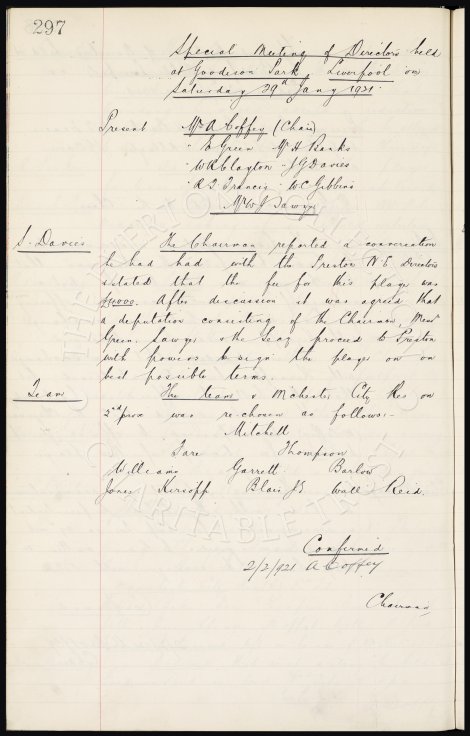 297
Special Meeting of Directors held
at Goodison Park, Liverpool on
Saturday 29th Jany 1921.
Present Mr A Coffey (Chair)
" E Green Mr H Banks
" W R Clayton " J G Davies
" R T Francis " W C Gibbins
Mr W J Sawyer
S. Davies The Chairman reported a conversation
he had had with the Preston N. E. Directors
& stated that the fee for this player was
£4000. After discussion it was agreed that
a deputation consisting of the Chairman, Messrs
Green, Sawyer & the Secy proceed to Preston
with powers to sign the player on on
best possible terms.
Team The team v Mchester City Res on
2nd prox was re-chosen as follows:-
Mitchell
Fare Thompson
Williams Garrett Barlow
Jones Kirsopp Blair J E Wall Reid.
Confirmed
2/2/1921 A Coffey
Chairman
THE EVERTON
CHARITABLE TRUST